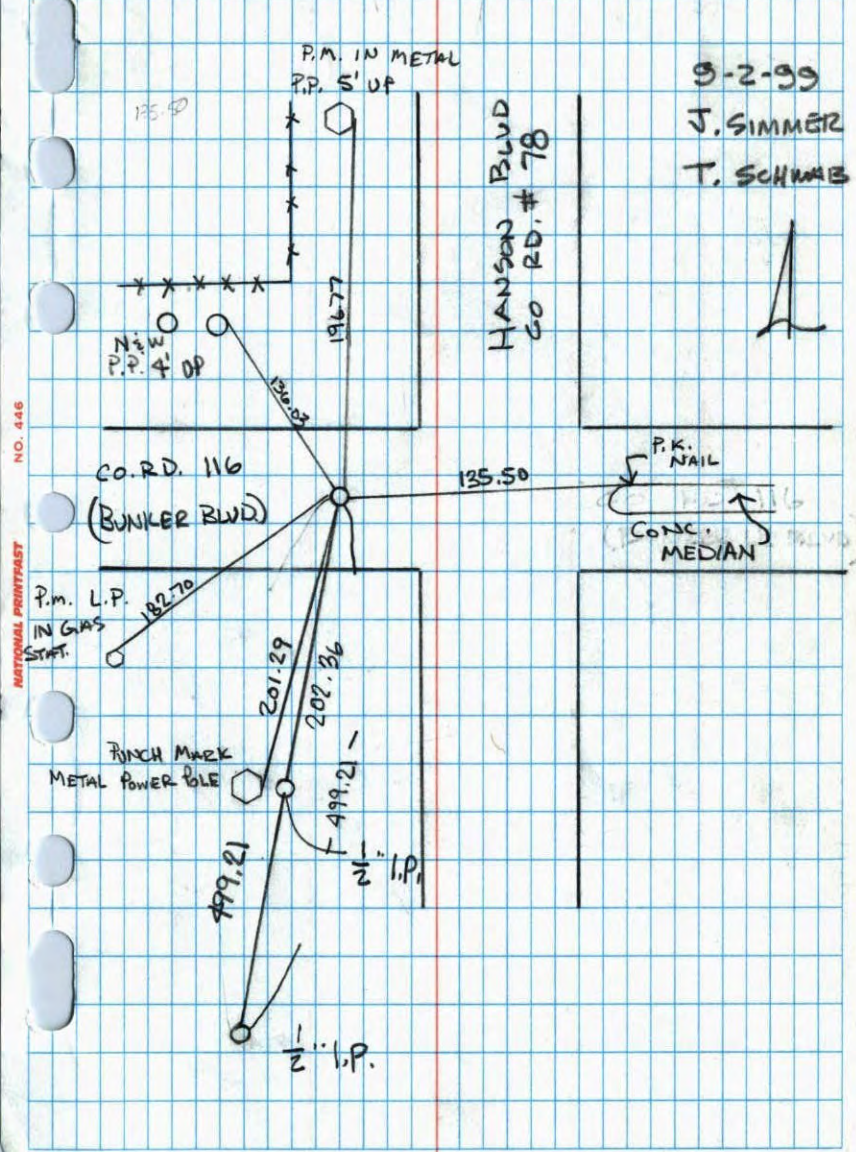 P.M. IN METAL
P.P. 5' UP
135.50
9-2-99
J. SIMMER
T. SCHWAB
HANSON BLVD
CO RD. # 78
196.77
N & W
P.P. 4' UP
136.03
CO. RD. 116
(BUNKER BLVD.)
135.50
P.K.
NAIL
CONC.
MEDIAN
P.M. L.P.
IN GAS
STAT.
182.70
201.29
202.36
PUNCH MARK
METAL POWER POLE
499.21
1/2" I.P.
499.21
1/2" I.P.
NO. 446
NATIONAL PRINTFAST